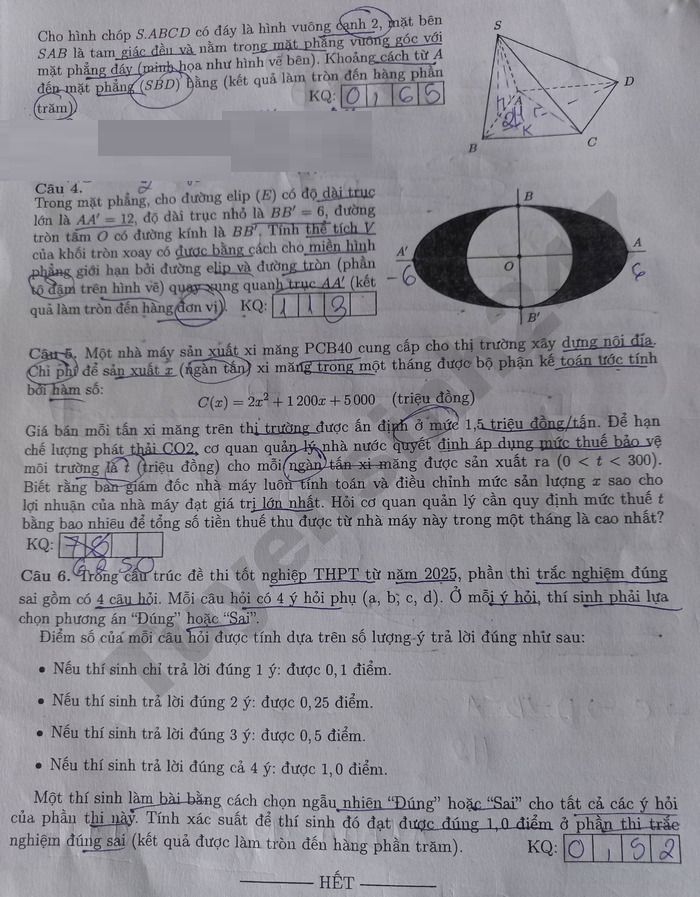 Cho hình chóp S.ABCD có đáy là hình vuông cạnh 2, mặt bên
SAB là tam giác đều và nằm trong mặt phẳng vuông góc với
mặt phẳng đáy (minh họa như hình vẽ bên). Khoảng cách từ A
đến mặt phẳng (SBD) bằng (kết quả làm tròn đến hàng phần
trăm)
KQ: 0,65
S
A
D
B
K
C
Câu 4.
Trong mặt phẳng, cho đường elip (E) có độ dài trục
lớn là AA' = 12, độ dài trục nhỏ là BB' = 6, đường
tròn tâm O có đường kính là BB'. Tính thể tích V
của khối tròn xoay có được bằng cách cho miền hình
phẳng giới hạn bởi đường elip và đường tròn (phần
tô đậm trên hình vẽ) quay xung quanh trục AA' (kết
quả làm tròn đến hàng đơn vị). KQ: 113
B
A'
A
O
-6
6
B'
Câu 5. Một nhà máy sản xuất xi măng PCB40 cung cấp cho thị trường xây dựng nội địa.
Chi phí để sản xuất x (ngàn tấn) xi măng trong một tháng được bộ phận kế toán ước tính
bởi hàm số:
C(x) = 2x² + 1 200x + 5 000 (triệu đồng)
Giá bán mỗi tấn xi măng trên thị trường được ấn định ở mức 1,5 triệu đồng/tấn. Để hạn
chế lượng phát thải CO2, cơ quan quản lý nhà nước quyết định áp dụng mức thuế bảo vệ
môi trường là t (triệu đồng) cho mỗi ngàn tấn xi măng được sản xuất ra (0 < t < 300).
Biết rằng ban giám đốc nhà máy luôn tính toán và điều chỉnh mức sản lượng x sao cho
lợi nhuận của nhà máy đạt giá trị lớn nhất. Hỏi cơ quan quản lý cần quy định mức thuế t
bằng bao nhiêu để tổng số tiền thuế thu được từ nhà máy này trong một tháng là cao nhất?
KQ:
Câu 6. Trong cấu trúc đề thi tốt nghiệp THPT từ năm 2025, phần thi trắc nghiệm đúng
sai gồm có 4 câu hỏi. Mỗi câu hỏi có 4 ý hỏi phụ (a, b, c, d). Ở mỗi ý hỏi, thí sinh phải lựa
chọn phương án "Đúng" hoặc "Sai".
Điểm số của mỗi câu hỏi được tính dựa trên số lượng ý trả lời đúng như sau:
• Nếu thí sinh chỉ trả lời đúng 1 ý: được 0,1 điểm.
• Nếu thí sinh trả lời đúng 2 ý: được 0,25 điểm.
• Nếu thí sinh trả lời đúng 3 ý: được 0,5 điểm.
• Nếu thí sinh trả lời đúng cả 4 ý: được 1,0 điểm.
Một thí sinh làm bài bằng cách chọn ngẫu nhiên "Đúng" hoặc "Sai" cho tất cả các ý hỏi
của phần thi này. Tính xác suất để thí sinh đó đạt được đúng 1,0 điểm ở phần thi trắc
nghiệm đúng sai (kết quả được làm tròn đến hàng phần trăm). KQ: 0,52
HẾT